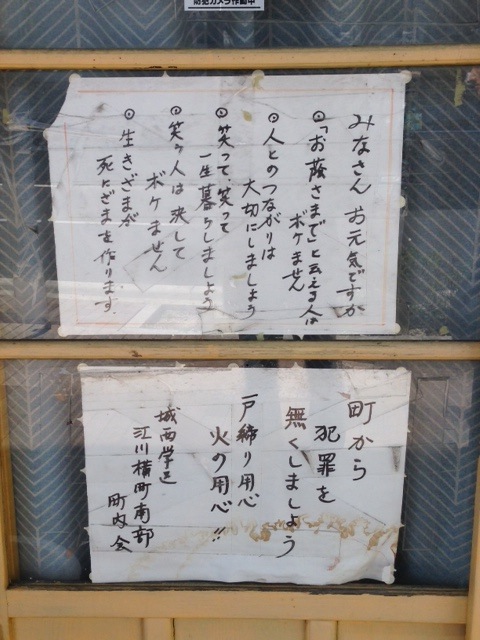 防犯カメラ作動中
みなさん お元気ですか
◎「お蔭さまで」と云える人は
ボケません
◎人とのつながりは
大切にしましょう
◎笑って、笑って
一生暮らしましょう
◎笑う人は決して
ボケません
◎生きざまが
死にざまを作ります。
町から
犯罪を
無くしましょう
戸締り用心
火の用心!!
城西学区
江川横町南部
町内会